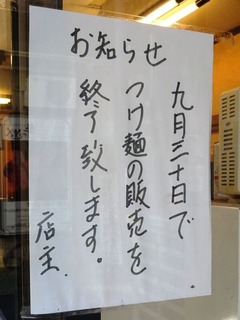 お知らせ
九月三十日で
つけ麺の販売を
終了致します。
店主.